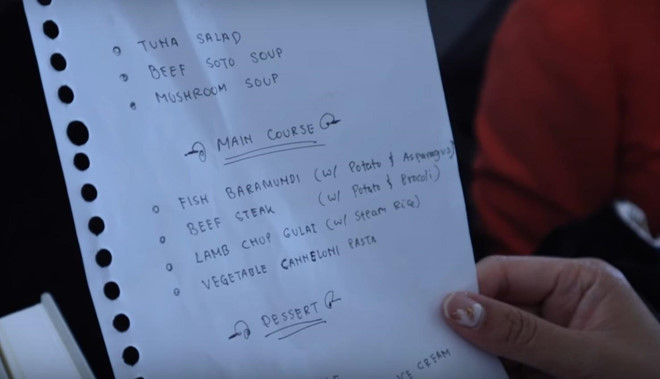 TUNA SALAD
BEEF SOTO SOUP
MUSHROOM SOUP
MAIN COURSE
FISH BARAMUNDI (W/ Potato & Asparagus)
BEEF STEAK (W/ Potato & Brocoli)
LAMB CHOP GULAI (W/ Steam Rice)
VEGETABLE CANNELONI PASTA
DESSERT
ICE CREAM